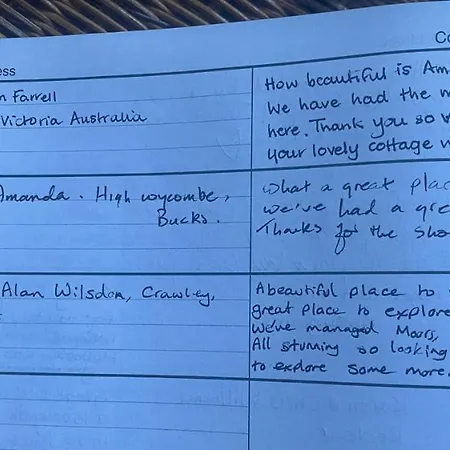 ess
Co
n Farrell
Victoria Australia
How beautiful is Am
We have had the m
here. Thank you so v
your lovely cottage w
Amanda. High wycombe,
Bucks.
What a great plac
we've had a gre
Thanks for the sho
Alan Wilsdon, Crawley,
A beautiful place to
great place to explore
We've managed Moors,
All stunning so looking
to explore some more.